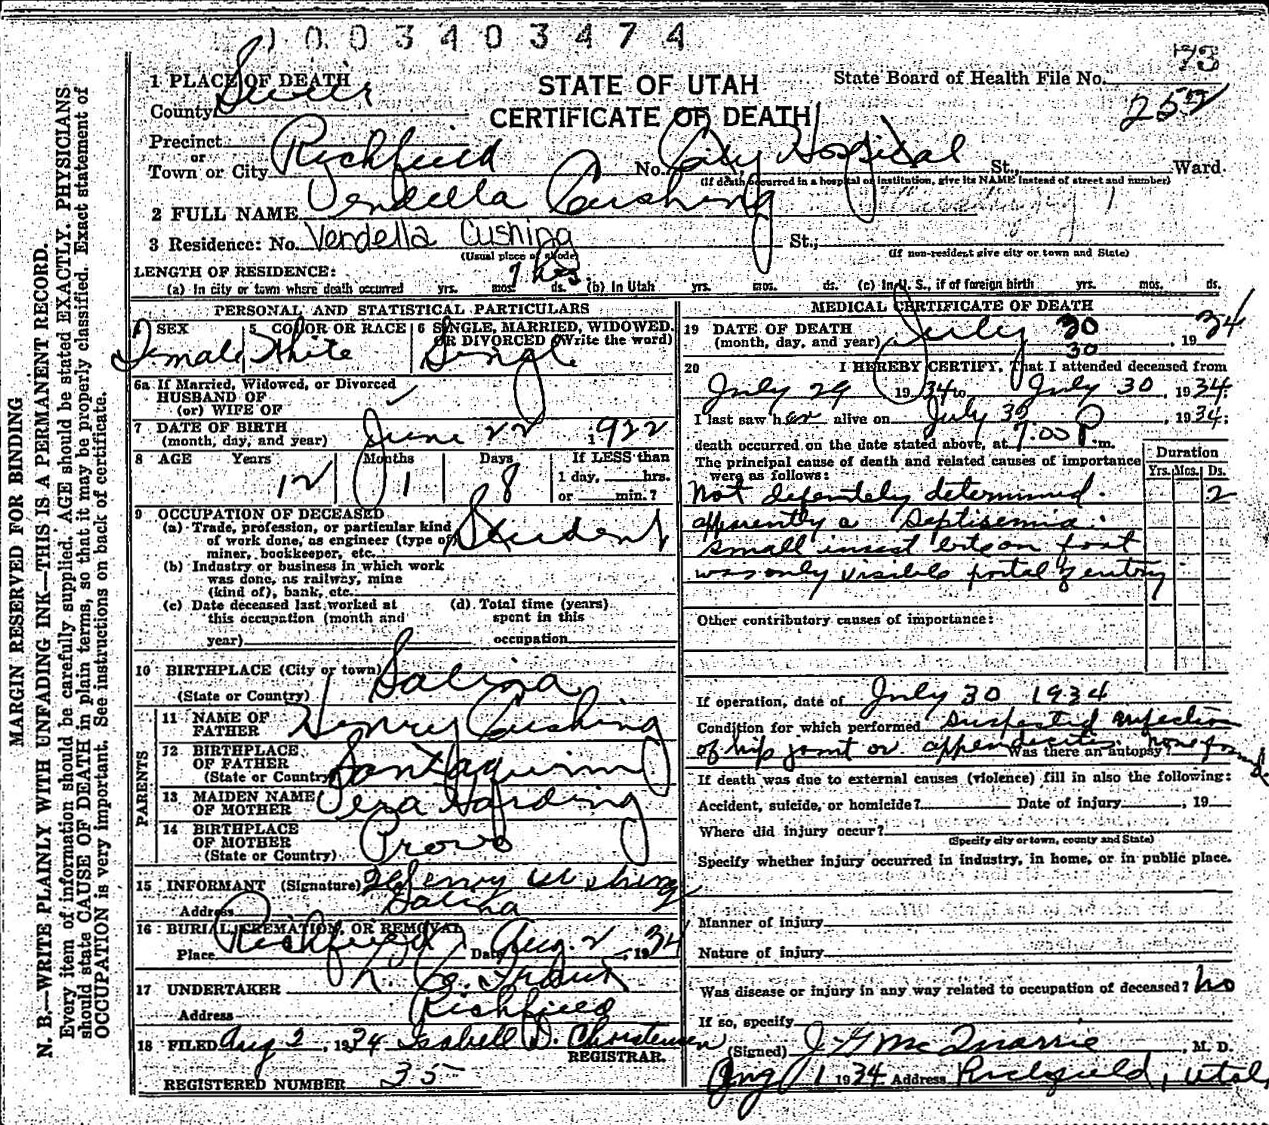 1003403474
73
1 PLACE OF DEATH
STATE OF UTAH
State Board of Health File No.
County Sevier
CERTIFICATE OF DEATH
Precinct
or
Town or City Richfield No. City Hospital St., Ward.
(If death occurred in a hospital or institution, give its NAME instead of street and number)
2 FULL NAME Vendella Cushing
3 Residence: No. Vendella Cushing St.;
(Usual place of abode) (If non-resident give city or town and State)
LENGTH OF RESIDENCE:
(a) In city or town where death occurred yrs. mos. ds. (b) in Utah yrs. mos. ds. (c) In U. S., if of foreign birth yrs. mos. ds.
PERSONAL AND STATISTICAL PARTICULARS
SEX 5 COLOR OR RACE 6 SINGLE, MARRIED, WIDOWED, OR DIVORCED (Write the word)
Female White Single
6a If Married, Widowed, or Divorced
HUSBAND OF
(or) WIFE OF
7 DATE OF BIRTH
(month, day, and year) June 22 1922
8 AGE Years Months Days If LESS than
12 1 8 1 day, hrs.
or min.?
9 OCCUPATION OF DECEASED
(a) Trade, profession, or particular kind
of work done, as engineer (type of
miner, bookkeeper, etc. Student
(b) Industry or business in which work
was done, as railway, mine
(kind of), bank, etc.
(c) Date deceased last worked at
this occupation (month and
year)
(d) Total time (years)
spent in this
occupation
10 BIRTHPLACE (City or town) Salina
(State or Country)
PARENTS
11 NAME OF
FATHER Henry Cushing
12 BIRTHPLACE
OF FATHER
(State or Country) Santaquin
13 MAIDEN NAME
OF MOTHER Harding
14 BIRTHPLACE
OF MOTHER
(State or Country) Provo
15 INFORMANT (Signature) Henry Cushing
Address Salina
16 BURIAL, CREMATION, OR REMOVAL
Place Richfield Date Aug 2, 1934
17 UNDERTAKER
Address Richfield
18 FILED Aug 2, 1934 Isabell D. Christensen
REGISTRAR.
REGISTERED NUMBER 35
MEDICAL CERTIFICATE OF DEATH
19 DATE OF DEATH
(month, day, and year) July 30, 1934
30
20 I HEREBY CERTIFY, That I attended deceased from
July 29 1934 to July 30, 1934.
I last saw her alive on July 30, 1934;
death occurred on the date stated above, at 7:00 P.m.
The principal cause of death and related causes of importance
were as follows:
Duration
Yrs. Mos. Ds.
Not defenitely determined. 2
apparently a Septisemia.
small insect bite on foot
was only visible portal of entry
Other contributory causes of importance:
If operation, date of July 30 1934
Condition for which performed suspected infection
of hip joint or appendicitis Was there an autopsy?
If death was due to external causes (violence) fill in also the following:
Accident, suicide, or homicide? Date of injury , 19
Where did injury occur?
(Specify city or town, county and State)
Specify whether injury occurred in industry, in home, or in public place.
Manner of injury
Nature of injury
Was disease or injury in any way related to occupation of deceased? no
If so, specify
(Signed) J G McQuarrie, M. D.
Aug 1 1934 Address Richfield, Utah
MARGIN RESERVED FOR BINDING
N. B.—WRITE PLAINLY WITH UNFADING INK—THIS IS A PERMANENT RECORD.
Every item of information should be carefully supplied. AGE should be stated EXACTLY. PHYSICIANS
should state CAUSE OF DEATH in plain terms, so that it may be properly classified. Exact statement of
OCCUPATION is very important. See instructions on back of certificate.